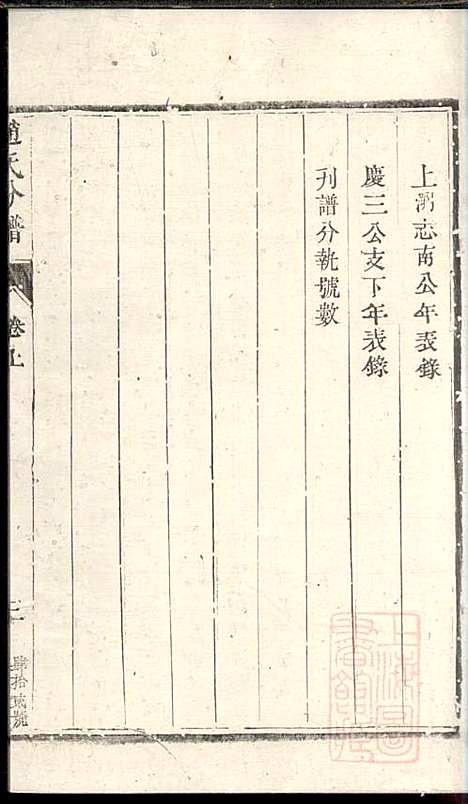 上湖志南公年表錄
慶三公支下年表錄
刊譜分執號數
趙氏分譜
卷上
三
肆拾貳號
上海圖書館藏